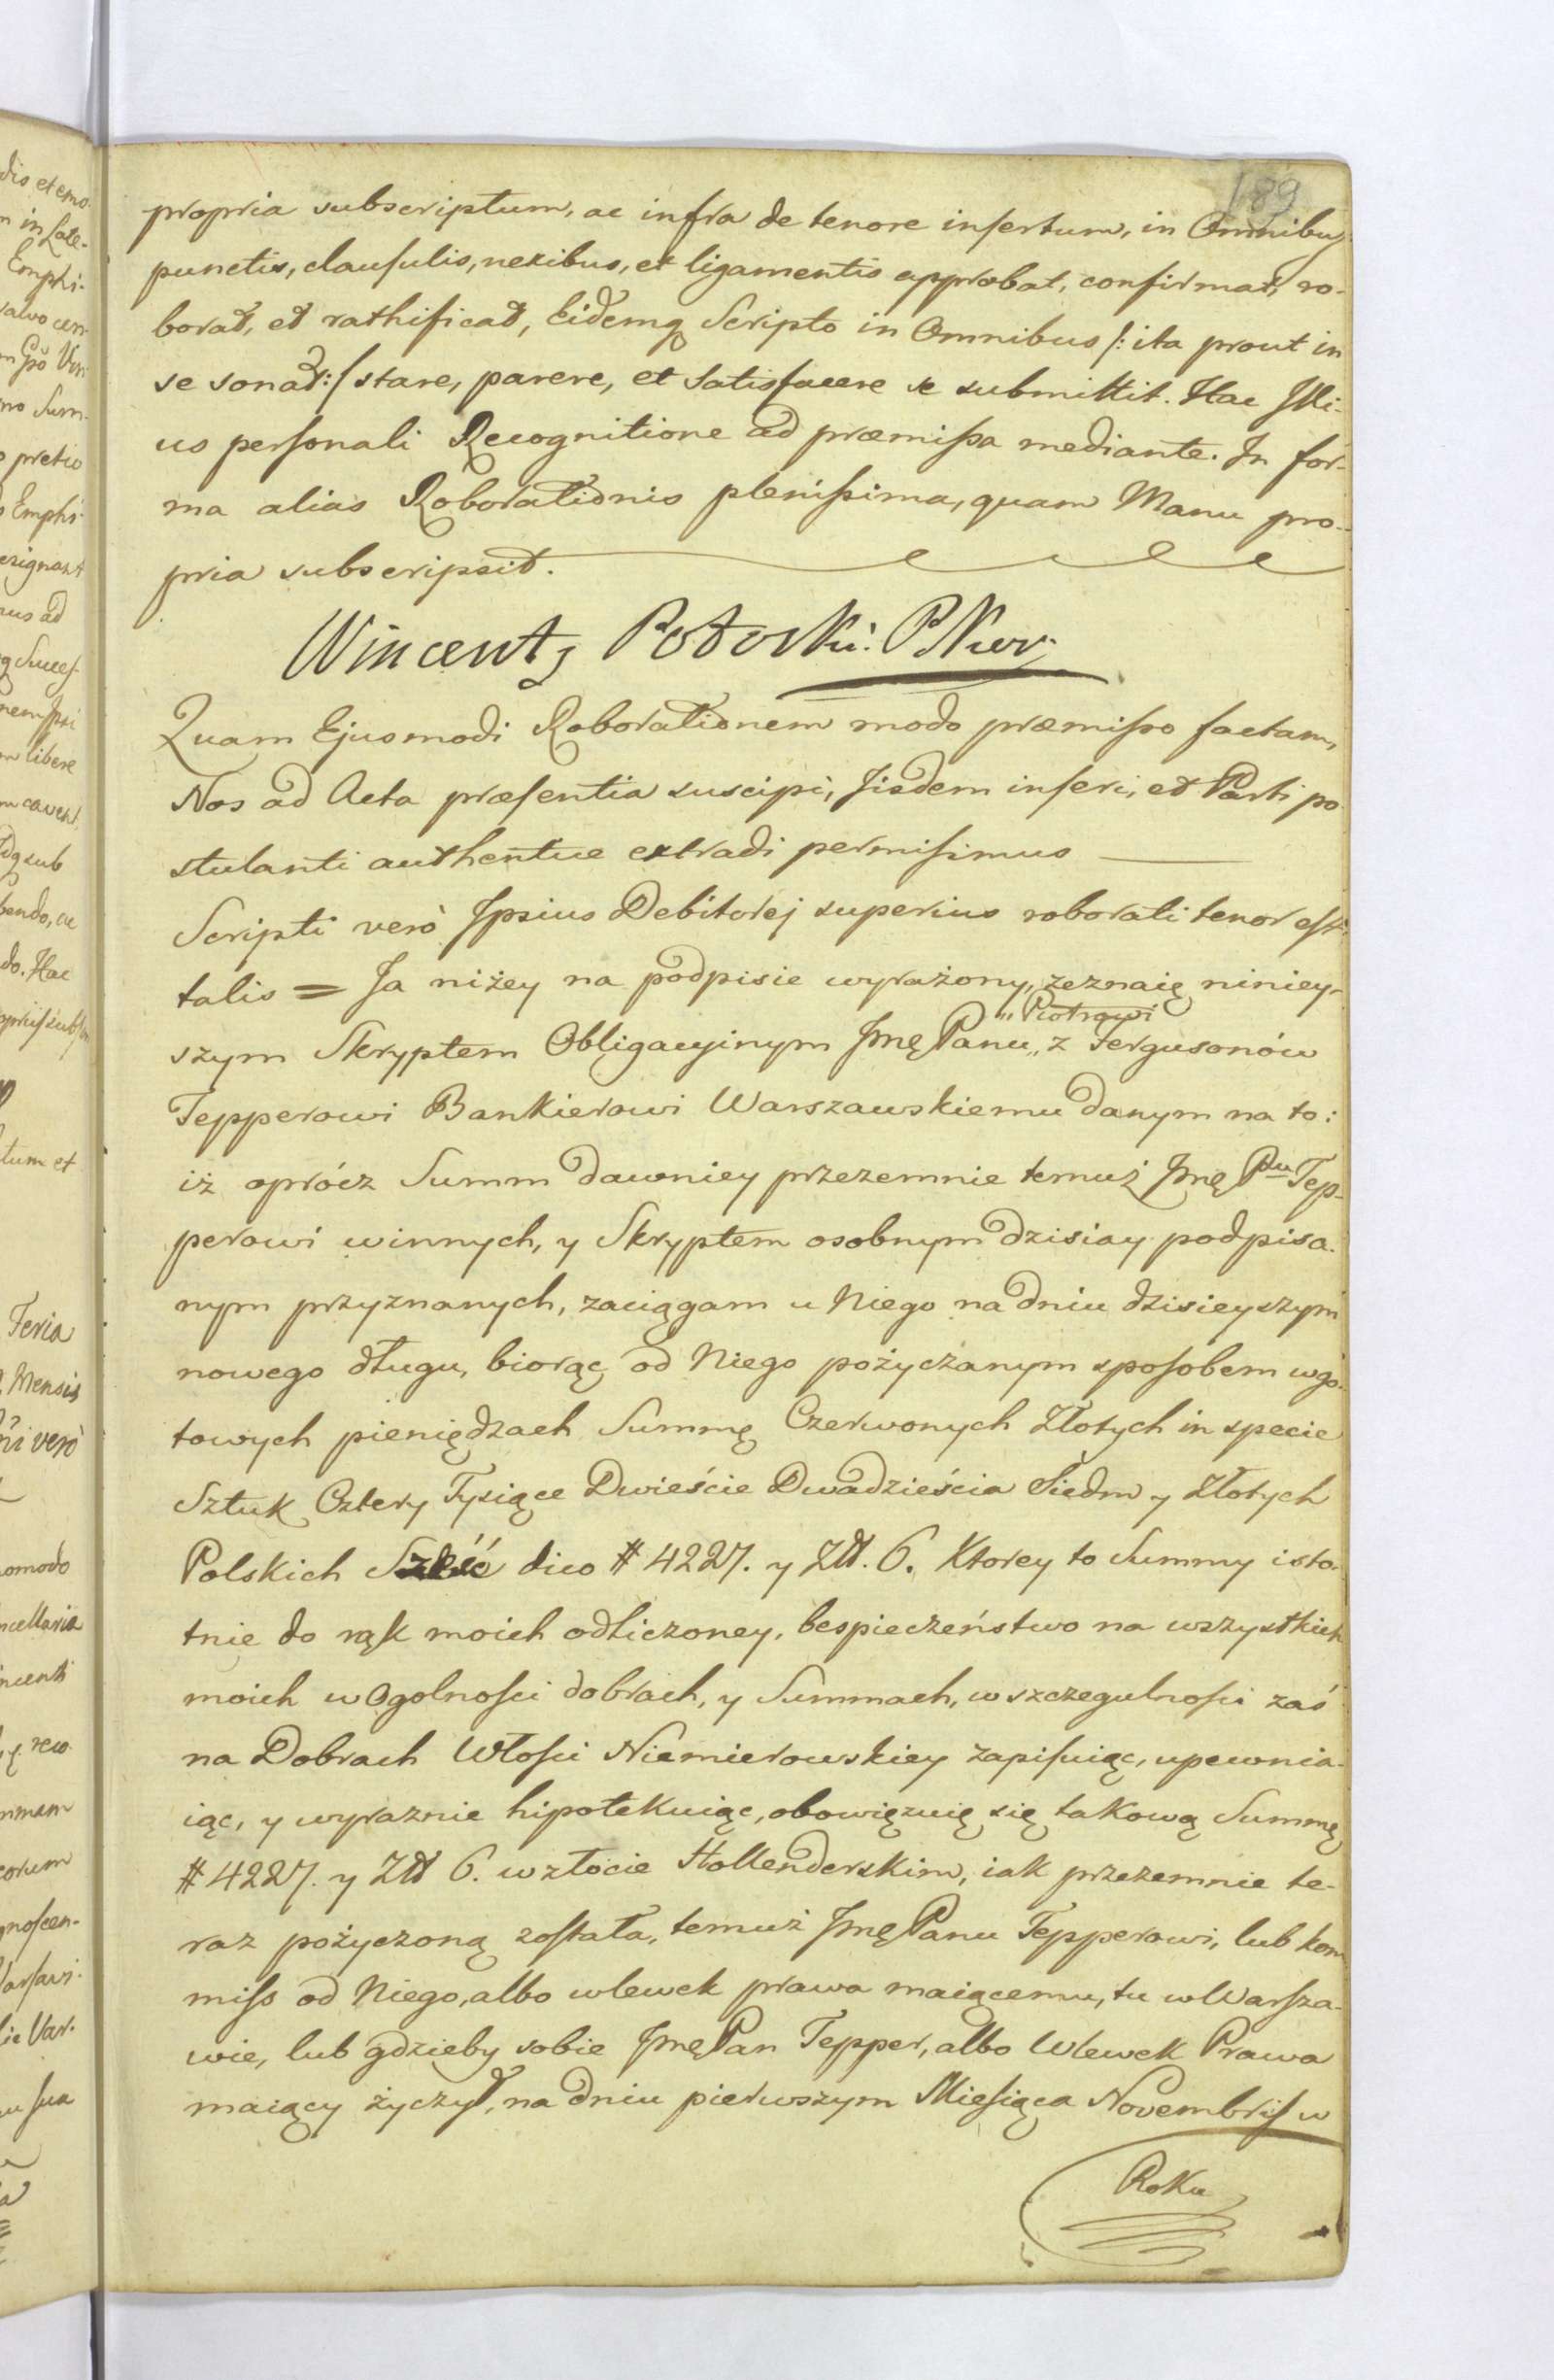 189
propria subscriptum, ac infra de tenore insertum, in Omnibus
punctis, clausulis, nexibus, et ligamentis approbat, confirmat, ro-
borat, et rathificat, Eidemq Scripto in Omnibus /: ita prout in
se sonat :/ stare, parere, et satisfacere se submittit. Hac Illi-
us personali Recognitione ad præmissa mediante. In for-
ma alias Roborationis plenissima, quam Manu pro-
pria subscripsit.
Wincenty Potocki. PKor:
Quam Ejusmodi Roborationem modo præmisso factam,
Nos ad Acta præsentia suscipi, Iisdem inseri, et Parti po
stulanti authentice extradi permisimus
Scripti verò Ipsius Debitorej superius roborati tenor est:
talis = Ja niżey na podpisie wyrażony, zeznaię niniey-
szym Skryptem Obligacyinym Jmę Panu „ z Fergusonów
„ Piotrowi
Tepperowi Bankierowi Warszawskiemu danym na to:
iż oprócz Summ dawniey przezemnie temuż Jmę Pnu Tep-
perowi winnych, y Skryptem osobnym dzisiay podpisa-
nym przyznanych, zaciągam u Niego na dniu dzisieyszym
nowego długu, biorąc od Niego pożyczanym sposobem w go-
towych pieniędzach Summę Czerwonych Złotych in specie
Sztuk Cztery Tysiące Dwieście Dwadzieścia Siedm y Złotych
Polskich Sześć dico # 4227. y Złł. 6. Ktorey to Summy isto-
tnie do rąk moich odliczoney, bespieczeństwo na wszystkich
moich w Ogolności dobrach, y Summach, w szczegulności zaś
na Dobrach Włości Niemirowskiey zapisuiąc, upewnia-
iąc, y wyraznie hipotekuiąc, obowięzuię się takową Summę
# 4227. y Złł 6. w złocie Hollenderskim, iak przezemnie te-
raz pożyczoną została, temuż Jmę Panu Tepperowi, lub kom
miss od Niego, albo wlewek prawa maiącemu, tu w Warsza-
wie, lub gdzieby sobie Jmę Pan Tepper, albo Wlewek Prawa
maiący życzył, na dniu pierwszym Miesiąca Novembris w
Roku